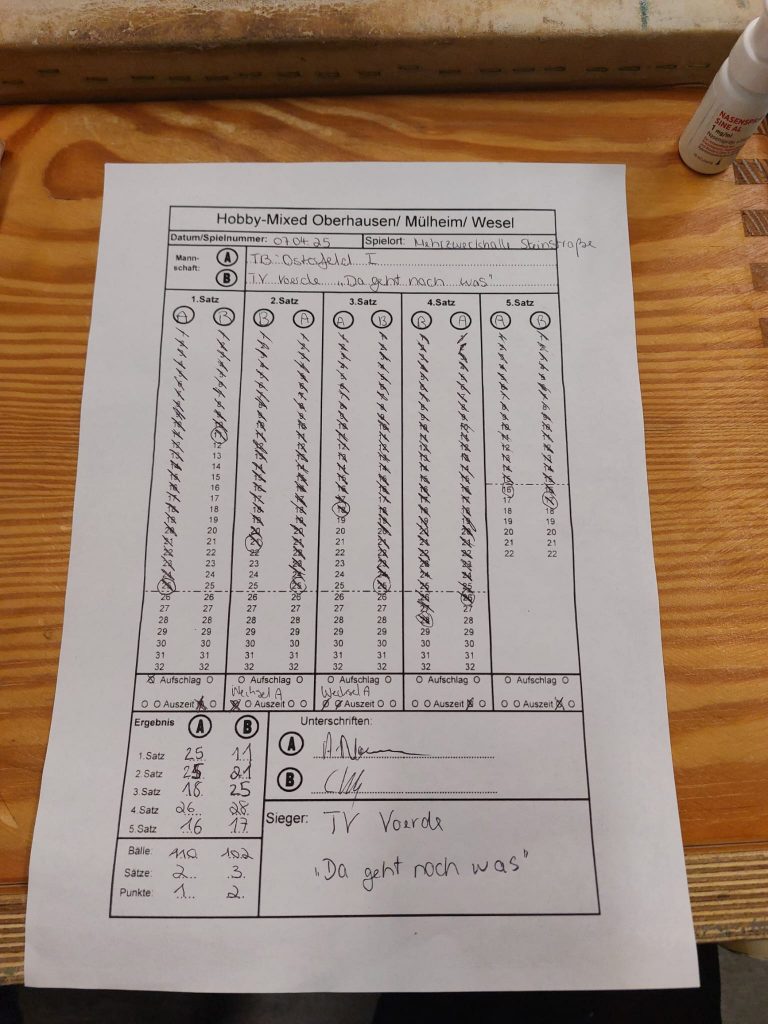 NASENSPRAY
SINE AL
1 mg/ml
Hobby-Mixed Oberhausen/ Mülheim/ Wesel
Datum/Spielnummer: 07.04.25 Spielort: Mehrzweckhalle Steinstraße
Mannschaft: A TB Osterfeld I
B TV Voerde „Da geht noch was"
1.Satz 2.Satz 3.Satz 4.Satz 5.Satz
A B B A A B B A A B
12
13
14
15
16 16
17 17
18 18 18
19 19 19 19
20 20 20 20
21 21 21 21 21
22 22 22 22 22
23 23 23
24 24 24
25 25 25 25 25
26 26 26 26 26 26 26
27 27 27 27 27 27 27
28 28 28 28 28 28 28 28
29 29 29 29 29 29 29 29
30 30 30 30 30 30 30 30
31 31 31 31 31 31 31 31
32 32 32 32 32 32 32 32
Aufschlag Aufschlag Aufschlag Aufschlag Aufschlag
Wechsel A Wechsel A
Auszeit Auszeit Auszeit Auszeit Auszeit
Ergebnis A B Unterschriften:
1.Satz 25 11 A
2.Satz 25 21
3.Satz 18 25 B
4.Satz 26 28
5.Satz 16 17
Sieger: TV Voerde
„Da geht noch was"
Bälle: 110 102
Sätze: 2 3
Punkte: 1 2